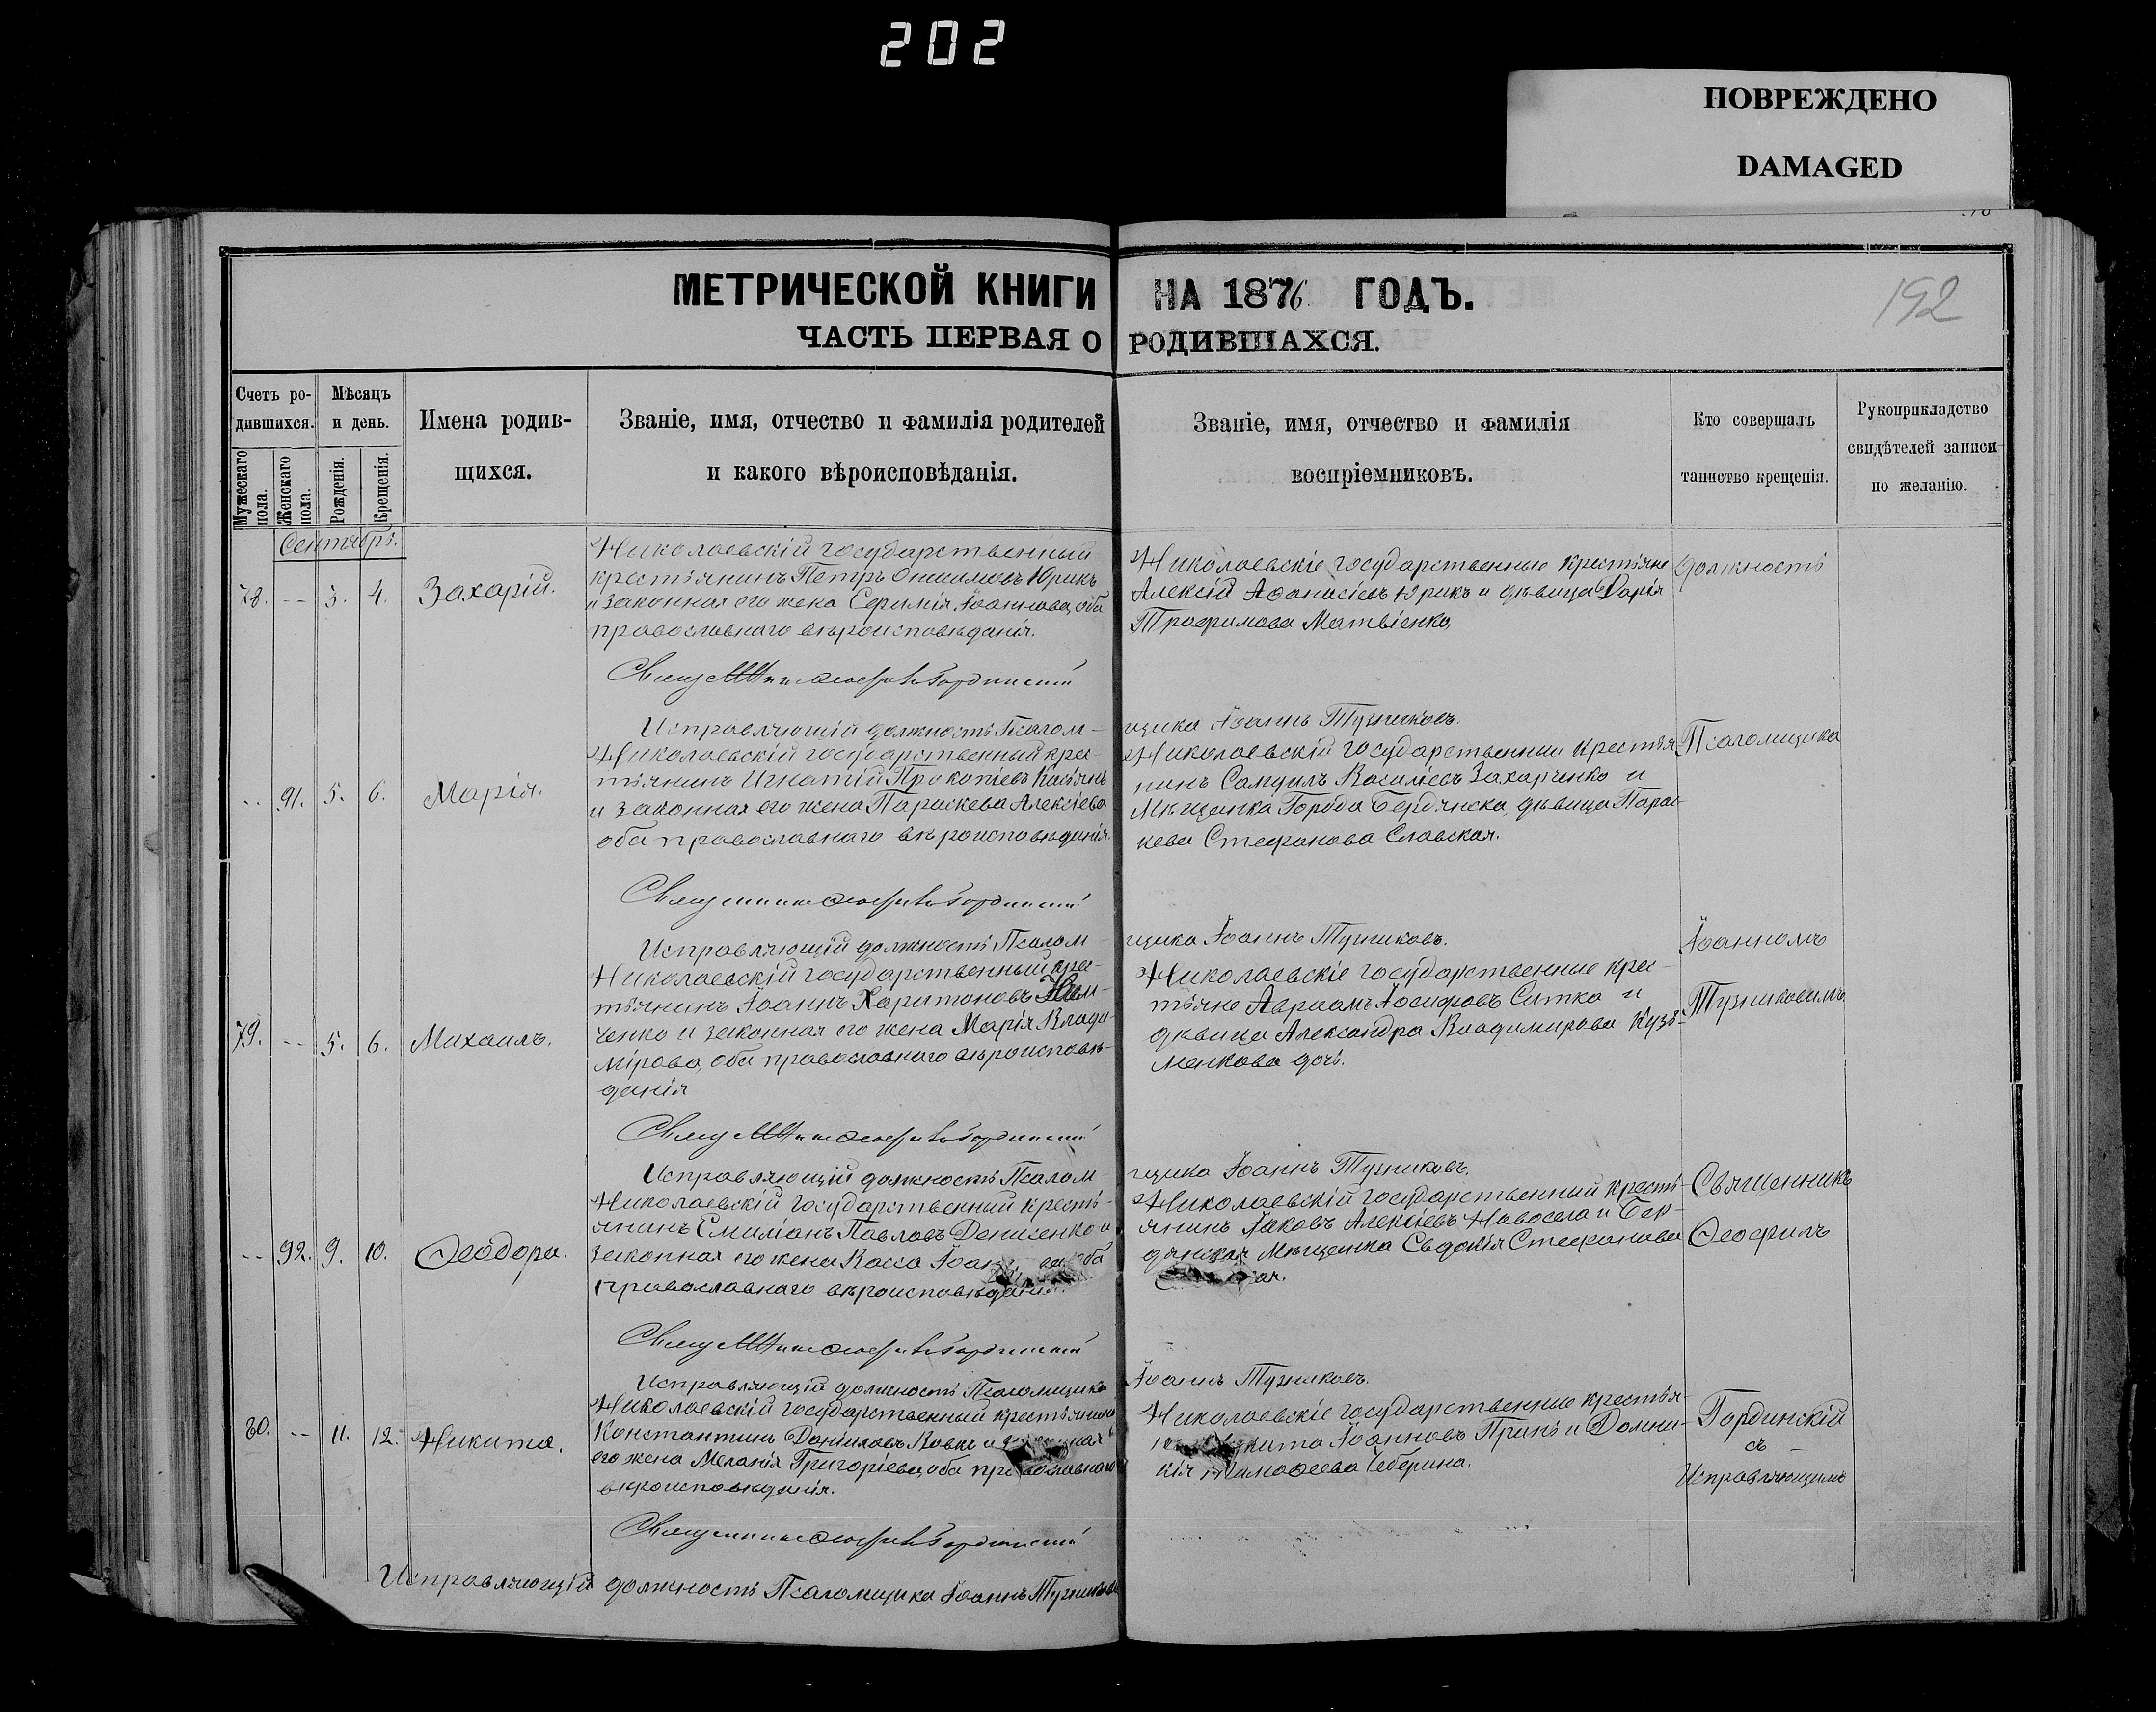 202
ПОВРЕЖДЕНО
DAMAGED
МЕТРИЧЕСКОЙ КНИГИ НА 1876 ГОДЪ.
192
ЧАСТЬ ПЕРВАЯ О РОДИВШАХСЯ.
Счетъ ро-
дившихся.
Мужескаго пола.
Женскаго пола.
Мѣсяцъ
и день.
Рожденія.
Крещенія.
Имена родив-
щихся.
Званіе, имя, отчество и фамилія родителей
и какого вѣроисповѣданія.
Званіе, имя, отчество и фамилія
воспріемниковъ.
Кто совершалъ
таинство крещенія.
Рукоприкладство
свидѣтелей записи
по желанію.
Сентябрь.
78. -- 3. 4. Захарій.
Николаевскій государственный
крестьянинъ Петръ Онисимовъ Юрикъ
и законная его жена Іоаннова, оба
православнаго вѣроисповѣданія.
Николаевскіе государственные крестьяне
Алексій Аѳанасіевъ Юрикъ и дѣвица Дарія
Трофимова Матвіенко.
должность
Гординскій
Исправляющій должность Псалом-
щика Іоаннъ Тузниковъ.
-- 91. 5. 6. Марія.
Николаевскій государственный крес-
тьянинъ Игнатій Прокопіевъ
и законная его жена Параскева Алексіева
оба православнаго вѣроисповѣданія.
Николаевскій государственный крестья-
нинъ Самуилъ Василіевъ Захарченко и
Мѣщанка Города Бердянска, дѣвица Парас-
кева Стефанова Славская.
Псаломщика
Гординскій
Исправляющій должность Псалом-
щика Іоаннъ Тузниковъ.
79. -- 5. 6. Михаилъ.
Николаевскій государственный крес-
тьянинъ Іоаннъ Харитоновъ
ченко и законная его жена Марія Влади-
мірова, оба православнаго вѣроисповѣ-
данія
Николаевскіе государственные крес-
тьяне Авраамъ Іосифовъ Ситко и
дѣвица Александра Владимирова Кузь-
менкова дочь.
Іоанномъ
Тузниковымъ
Гординскій
Исправляющій должность Псалом-
щика Іоаннъ Тузниковъ.
-- 92. 9. 10. Ѳеодора.
Николаевскій государственный кресть-
янинъ Емиліанъ Павловъ Денисенко и
законная его жена Васса оба
православнаго вѣроисповѣданія.
Николаевскій государственный кресть-
янинъ Іаковъ Алексіевъ Новосела и Бер-
дянская Мѣщанка Евдокія Стефанова
Священникъ
Ѳеофилъ
Гординскій
Исправляющій должность Псаломщика
Іоаннъ Тузниковъ.
80. -- 11. 12. Никита.
Николаевскій государственный крестьянинъ
Константинъ Даніиловъ Вовкъ и
его жена Меланія Григоріева, оба православнаго
вѣроисповѣданія.
Николаевскіе государственные крестья-
Іоанновъ и Домни-
кія Тимоѳеева Чеберина.
Гординскій
съ
Исправляющимъ
Гординскій
Исправляющій должность Псаломщика Іоаннъ Тузниковъ